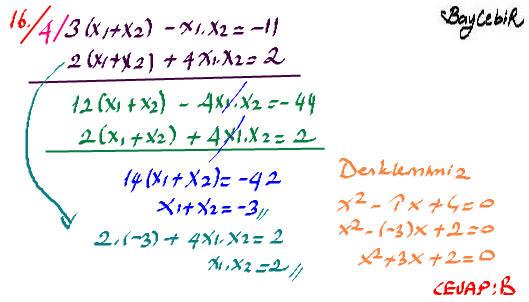 16./ 4/ 3(x₁+x₂) - x₁.x₂ = -11
BayCebiR
2(x₁+x₂) + 4x₁.x₂ = 2
12(x₁+x₂) - 4x₁.x₂ = -44
2(x₁+x₂) + 4x₁.x₂ = 2
14(x₁+x₂) = -42
x₁+x₂ = -3//
2.(-3) + 4x₁.x₂ = 2
x₁.x₂ = 2//
Denklemimiz
x² - Tx + Ç = 0
x² - (-3)x + 2 = 0
x² + 3x + 2 = 0
CEVAP: B